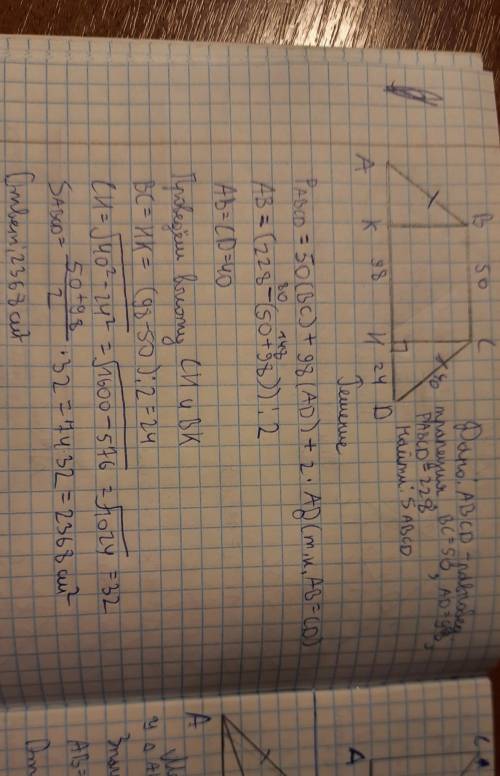 Дано: ABCD - равнобед.
трапеция BC=50, AD=98,
PABCD=228
Найти: SABCD
B 50 C
A K 98 H 24 D
Решение
PABCD = 50(BC) + 98(AD) + 2·AB (т.к. AB=CD)
80 148
AB = (228-(50+98)):2
AB=CD=40
Проведём высоту CH и BK
BC=HK= (98-50):2=24
CH=√40²-24² = √1600-576 = √1024 =32
SABCD= 50+98/2 ·32=74·32=2368 см²
Ответ: 2368 см²
A
У ΔA
AB=
A